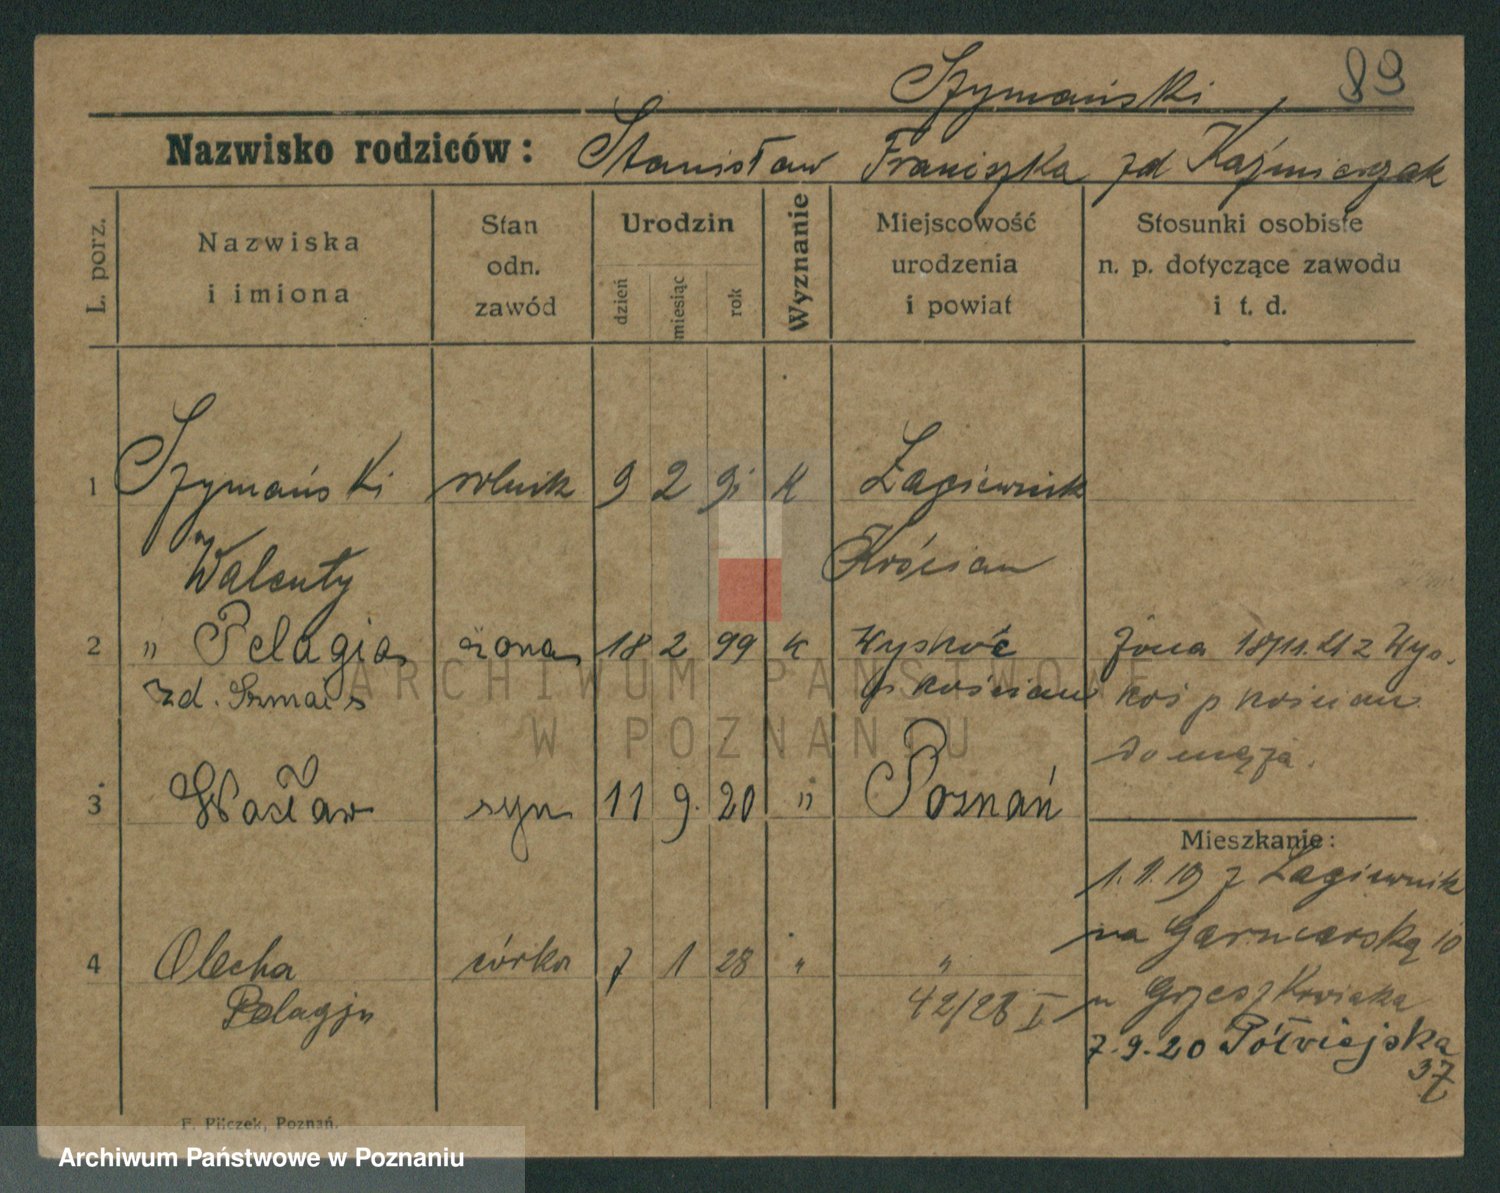 Szymański 89
Nazwisko rodziców: Stanisław Franciszka zd Kaźmierczak
L. porz.
Nazwiska
i imiona
Stan
odn.
zawód
Urodzin
dzień
miesiąc
rok
Wyznanie
Miejscowość
urodzenia
i powiat
Stosunki osobiste
n. p. dotyczące zawodu
i t. d.
1 Szymański rolnik 9 2 91 K Łagiewnik
Walenty Kościan
2 " Pelagia żona 18 2 99 K Wyskoć żona 18/11.21 z Wys-
zd. p Kościan koś p Kościan
do męża.
3 Wacław syn 11 9. 20 " Poznań
Mieszkanie:
1.1.19 z Łagiewnik
na Garncarską 10
4 Olecha córka 7 1 28 " "
Pelagja 42/28 I u Grzeszkowiaka
7.9.20 Półwiejska
37
F. Pilczek, Poznań.
ARCHIWUM PAŃSTWOWE
W POZNANIU
Archiwum Państwowe w Poznaniu